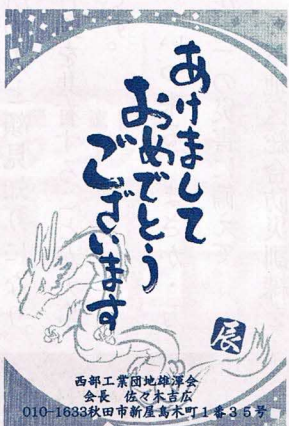 あけまして
おめでとう
ございます
辰
西部工業団地雄澤会
会長　佐々木吉広
010-1633秋田市新屋鳥木町1番35号